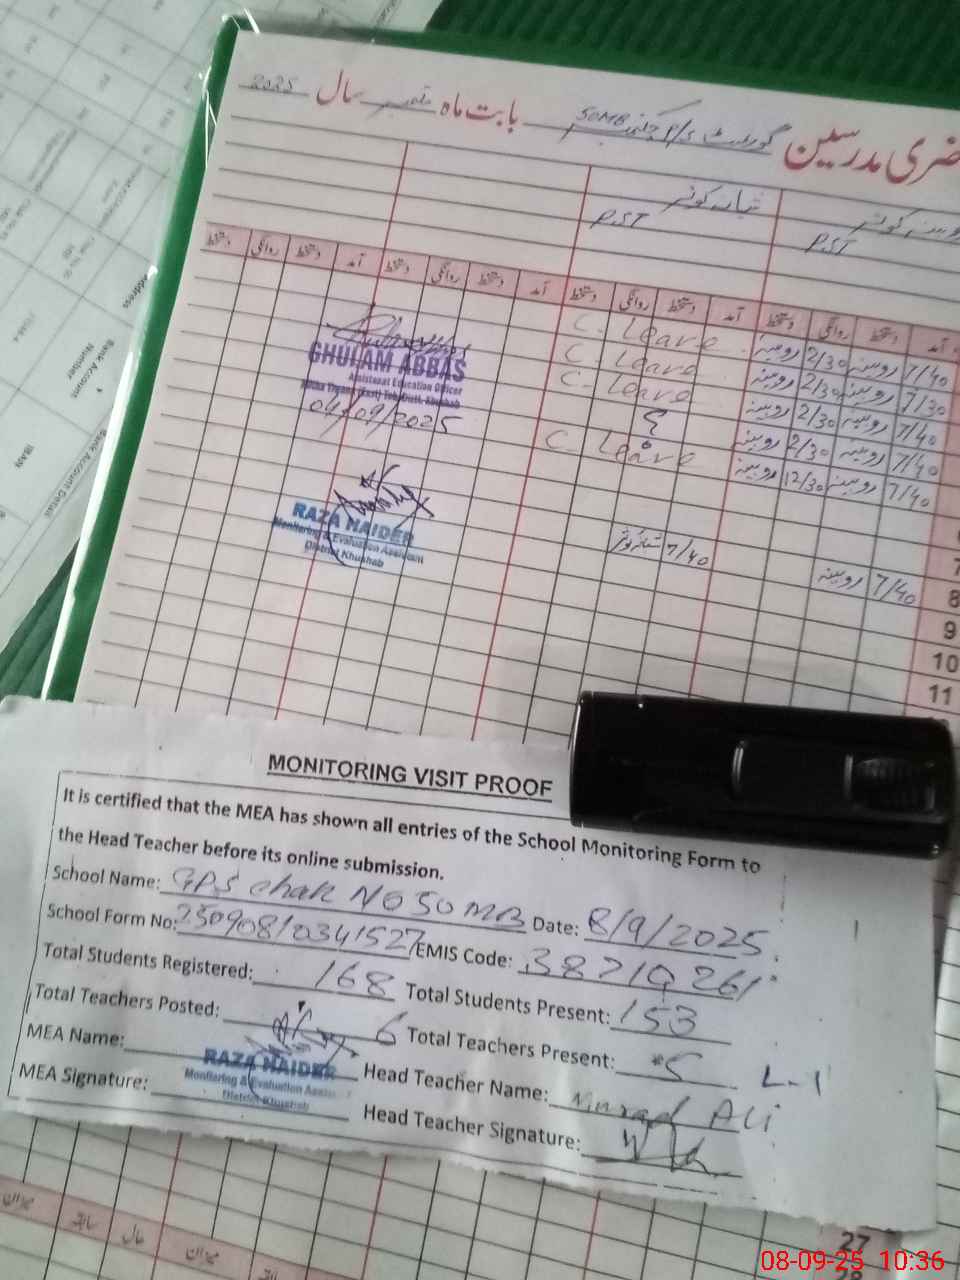 حاضری مدرسین گورنمنٹ P/S چک 50MB بابت ماہ ستمبر سال 2025
روبینہ کوثر
P.S.T
P.ST
آمد دستخط روانگی دستخط آمد دستخط روانگی دستخط آمد دستخط روانگی دستخط آمد دستخط روانگی دستخط
7/40 روبینہ 2/30 روبینہ C. Leave
7/30 روبینہ 2/30 روبینہ C. Leave
7/40 روبینہ 2/30 روبینہ C. Leave
7/40 روبینہ 2/30 روبینہ
7/40 روبینہ 12/30 روبینہ C. Leave
GHULAM ABBAS
Assistant Education Officer
04/09/2025
RAZA HAIDER
Monitoring & Evaluation Assistant
District Khushab
7
7/40
8
7/40 روبینہ
9
10
11
MONITORING VISIT PROOF
It is certified that the MEA has shown all entries of the School Monitoring Form to
the Head Teacher before its online submission.
School Name: GPS chak NO 50 MB Date: 8/9/2025
School Form No: 250908/0341527 EMIS Code: 38710261
Total Students Registered: 168 Total Students Present: 153
Total Teachers Posted: 6 Total Teachers Present: 5 L-1
MEA Name: RAZA HAIDER Head Teacher Name: Murad Ali
Monitoring & Evaluation Assistant
District Khushab
MEA Signature: Head Teacher Signature:
27
Address
Bank Account
Number
IBAN
Bank Account Detail
میزان سابقہ حال میزان
08-09-25 10:36